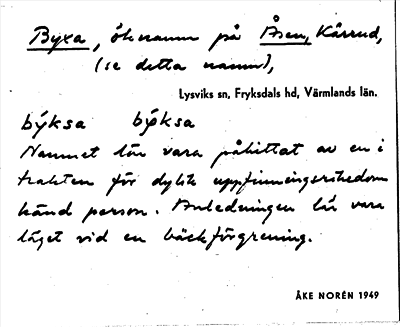 Byxa, öknamn på Åsen, Kårrud,
(se detta namn),
Lysviks sn, Fryksdals hd, Värmlands län.
býksa by̌ksa
Namnet lär vara påhittat av en i
trakten för dylik uppfinningsrikedom
känd person. Anledningen lär vara
läget vid en bäckförgrening.
ÅKE NORÉN 1949